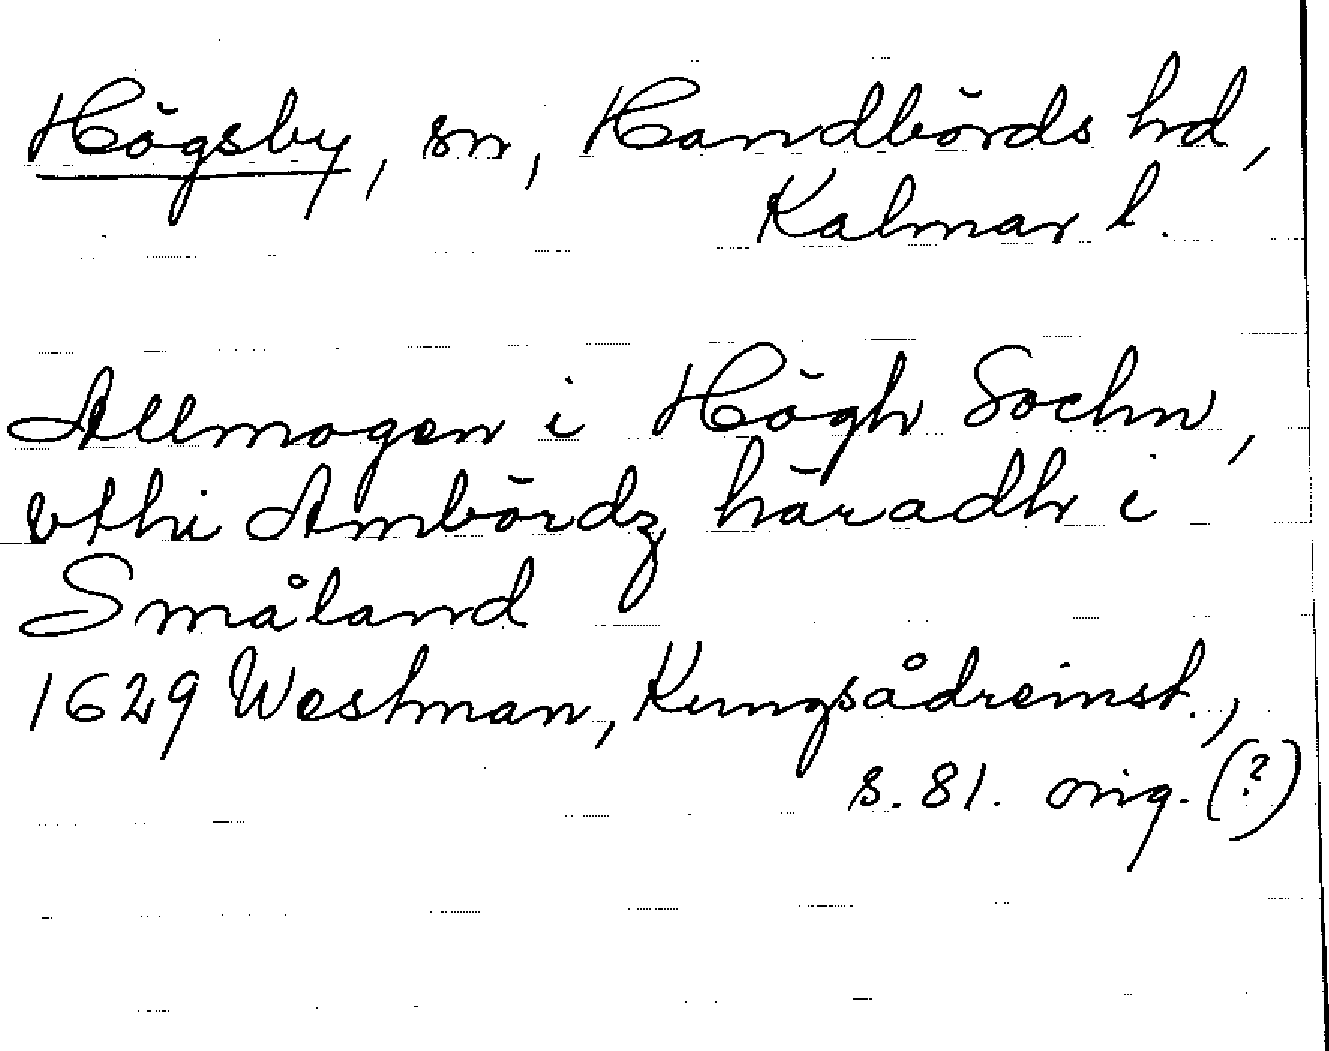 Högsby, sn, Handbörds hd,
Kalmar l.
Allmogen i Högh Sochn,
vthi Ambördz häradh i
Småland
1629 Westman, Kungsådreinst.,
s. 81. orig. (?)